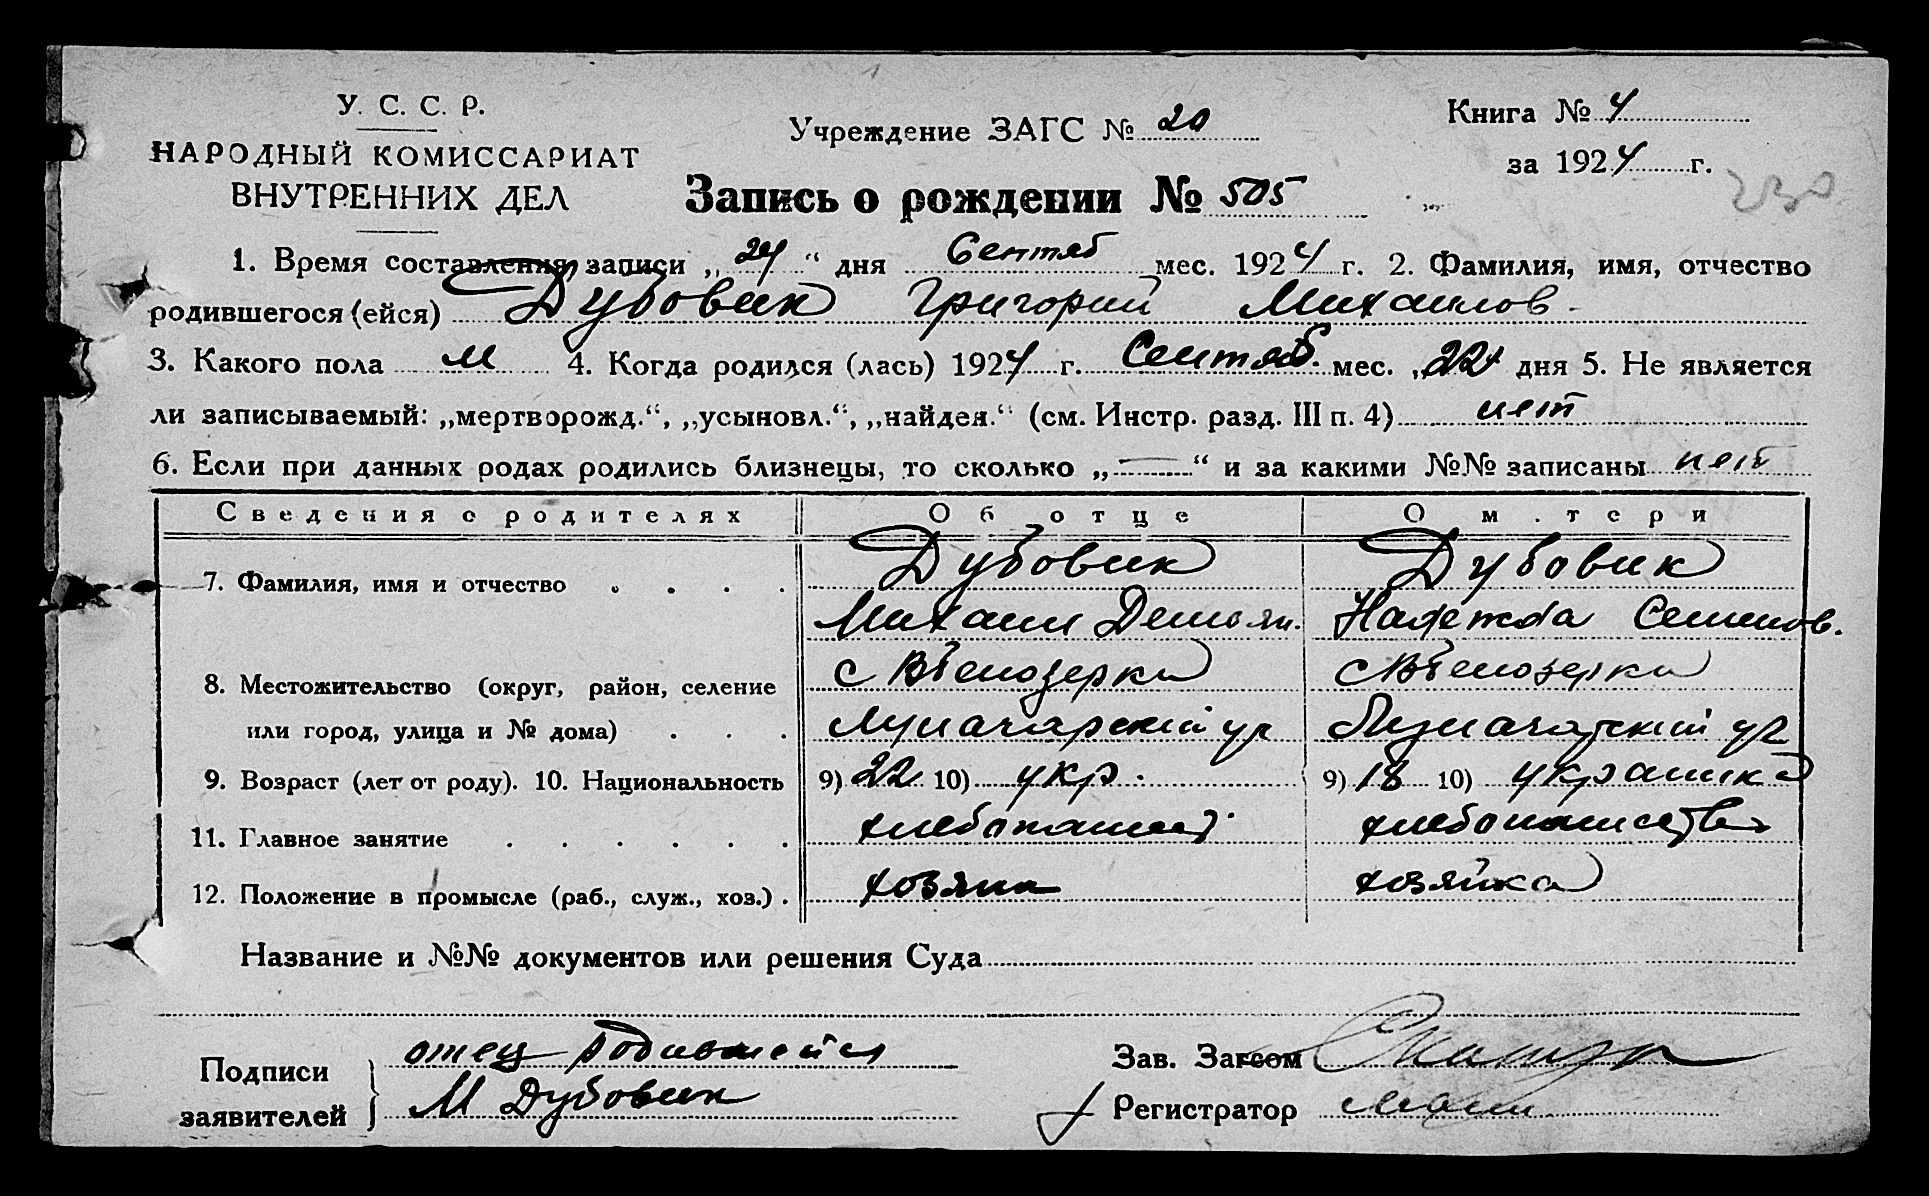 У. С. С. Р.
НАРОДНЫЙ КОМИССАРИАТ
ВНУТРЕННИХ ДЕЛ
Учреждение ЗАГС № 20
Книга № 4
за 1924 г.
230
Запись о рождении № 505
1. Время составления записи „24“ дня Сентяб мес. 1924 г. 2. Фамилия, имя, отчество
родившегося (ейся) Дубовик Григорий Михаилов
3. Какого пола м 4. Когда родился (лась) 1924 г. Сентяб. мес. „22“ дня 5. Не является
ли записываемый: „мертворожд.“, „усыновл.“, „найден.“ (см. Инстр. разд. III п. 4) нет
6. Если при данных родах родились близнецы, то сколько „—“ и за какими №№ записаны нет
Сведения о родителях Об отце О матери
7. Фамилия, имя и отчество Дубовик Дубовик
Михаил Демьян. Надежда Семенов.
8. Местожительство (округ, район, селение с Белозерки с Белозерки
или город, улица и № дома) Луначарский ур Луначарский ур
9. Возраст (лет от роду). 10. Национальность 9) 22 10) укр. 9) 18 10) украинка
11. Главное занятие хлебопашест. хлебопашество
12. Положение в промысле (раб., служ., хоз.) хозяин хозяйка
Название и №№ документов или решения Суда
Подписи
заявителей
отец родившейся
М Дубовик
Зав. Загсом
Регистратор